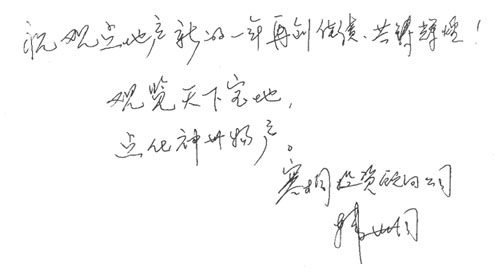 祝观点地产新的一年再创佳绩、共铸辉煌！
观览天下宝地，
点化神州物产。
投资顾问公司